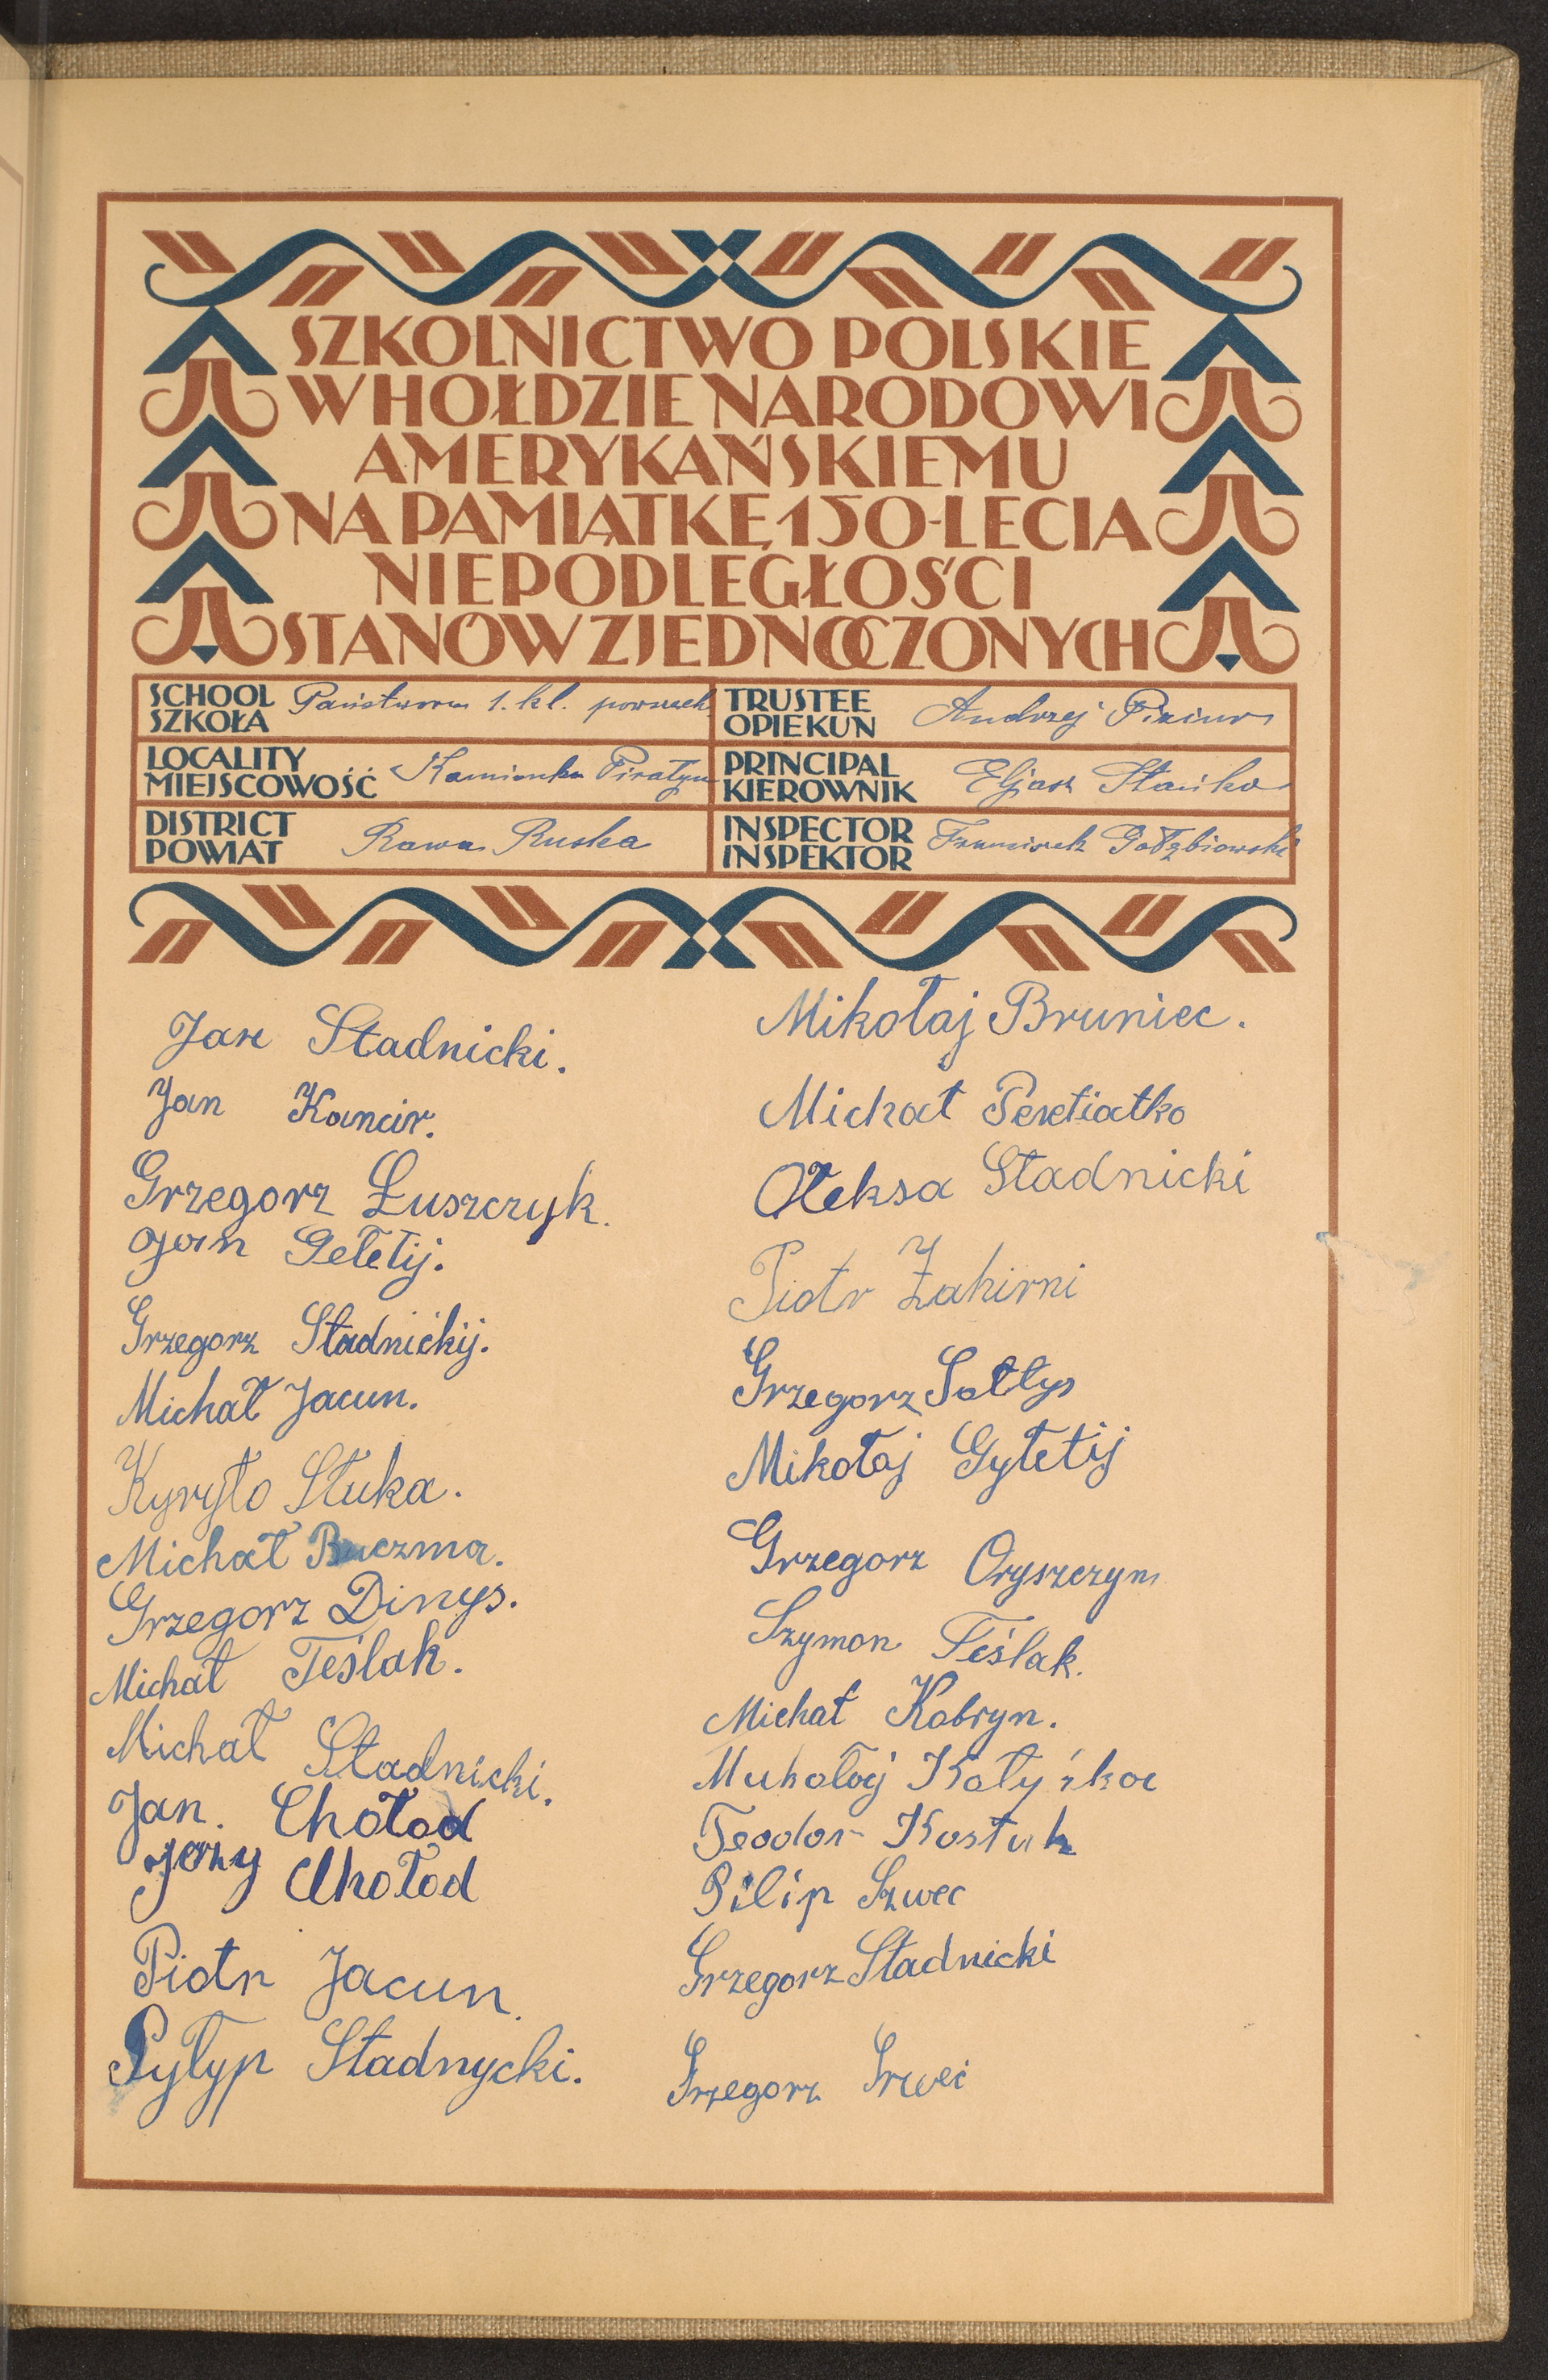 SZKOLNICTWO POLSKIE
W HOŁDZIE NARODOWI
AMERYKAŃSKIEMU
NA PAMIĄTKĘ 150-LECIA
NIEPODLEGŁOŚCI
STANÓW ZJEDNOCZONYCH
SCHOOL
SZKOŁA
Państwowa 1. kl. powszech.
TRUSTEE
OPIEKUN
Andrzej
LOCALITY
MIEJSCOWOŚĆ
Kamionka Piratyn
PRINCIPAL
KIEROWNIK
Eljasz Stańko
DISTRICT
POWIAT
Rawa Ruska
INSPECTOR
INSPEKTOR
Franciszek Gołębiowski
Jan Stadnicki.
Jan Kancir.
Grzegorz Łuszczyk.
Jan Geletij.
Grzegorz Stadnickij.
Michał Jacun.
Kyryło Stuka.
Michał Buczma.
Grzegorz Dinys.
Michał Teślak.
Michał Stadnicki.
Jan. Chołod
Jerzy Chołod
Piotr Jacun.
Pyłyp Stadnycki.
Mikołaj Bruniec.
Michał Peretiatko
Ołeksa Stadnicki
Piotr Zakirni
Grzegorz Sołtys
Mikołaj Gyłetij
Grzegorz Oryszczyn
Szymon Teślak.
Michał Kobryn.
Teodor Kostuk
Pilip Szwec
Grzegorz Stadnicki
Grzegorz Szweć